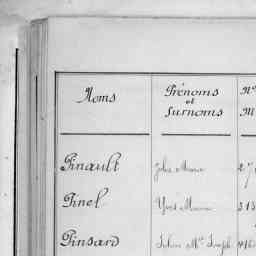 Noms
Prénoms
et
Surnoms
Nº
M
Pinault Jules Marie 27
Pinel Yves Marie 313
Pinsard Julien Mie Joseph